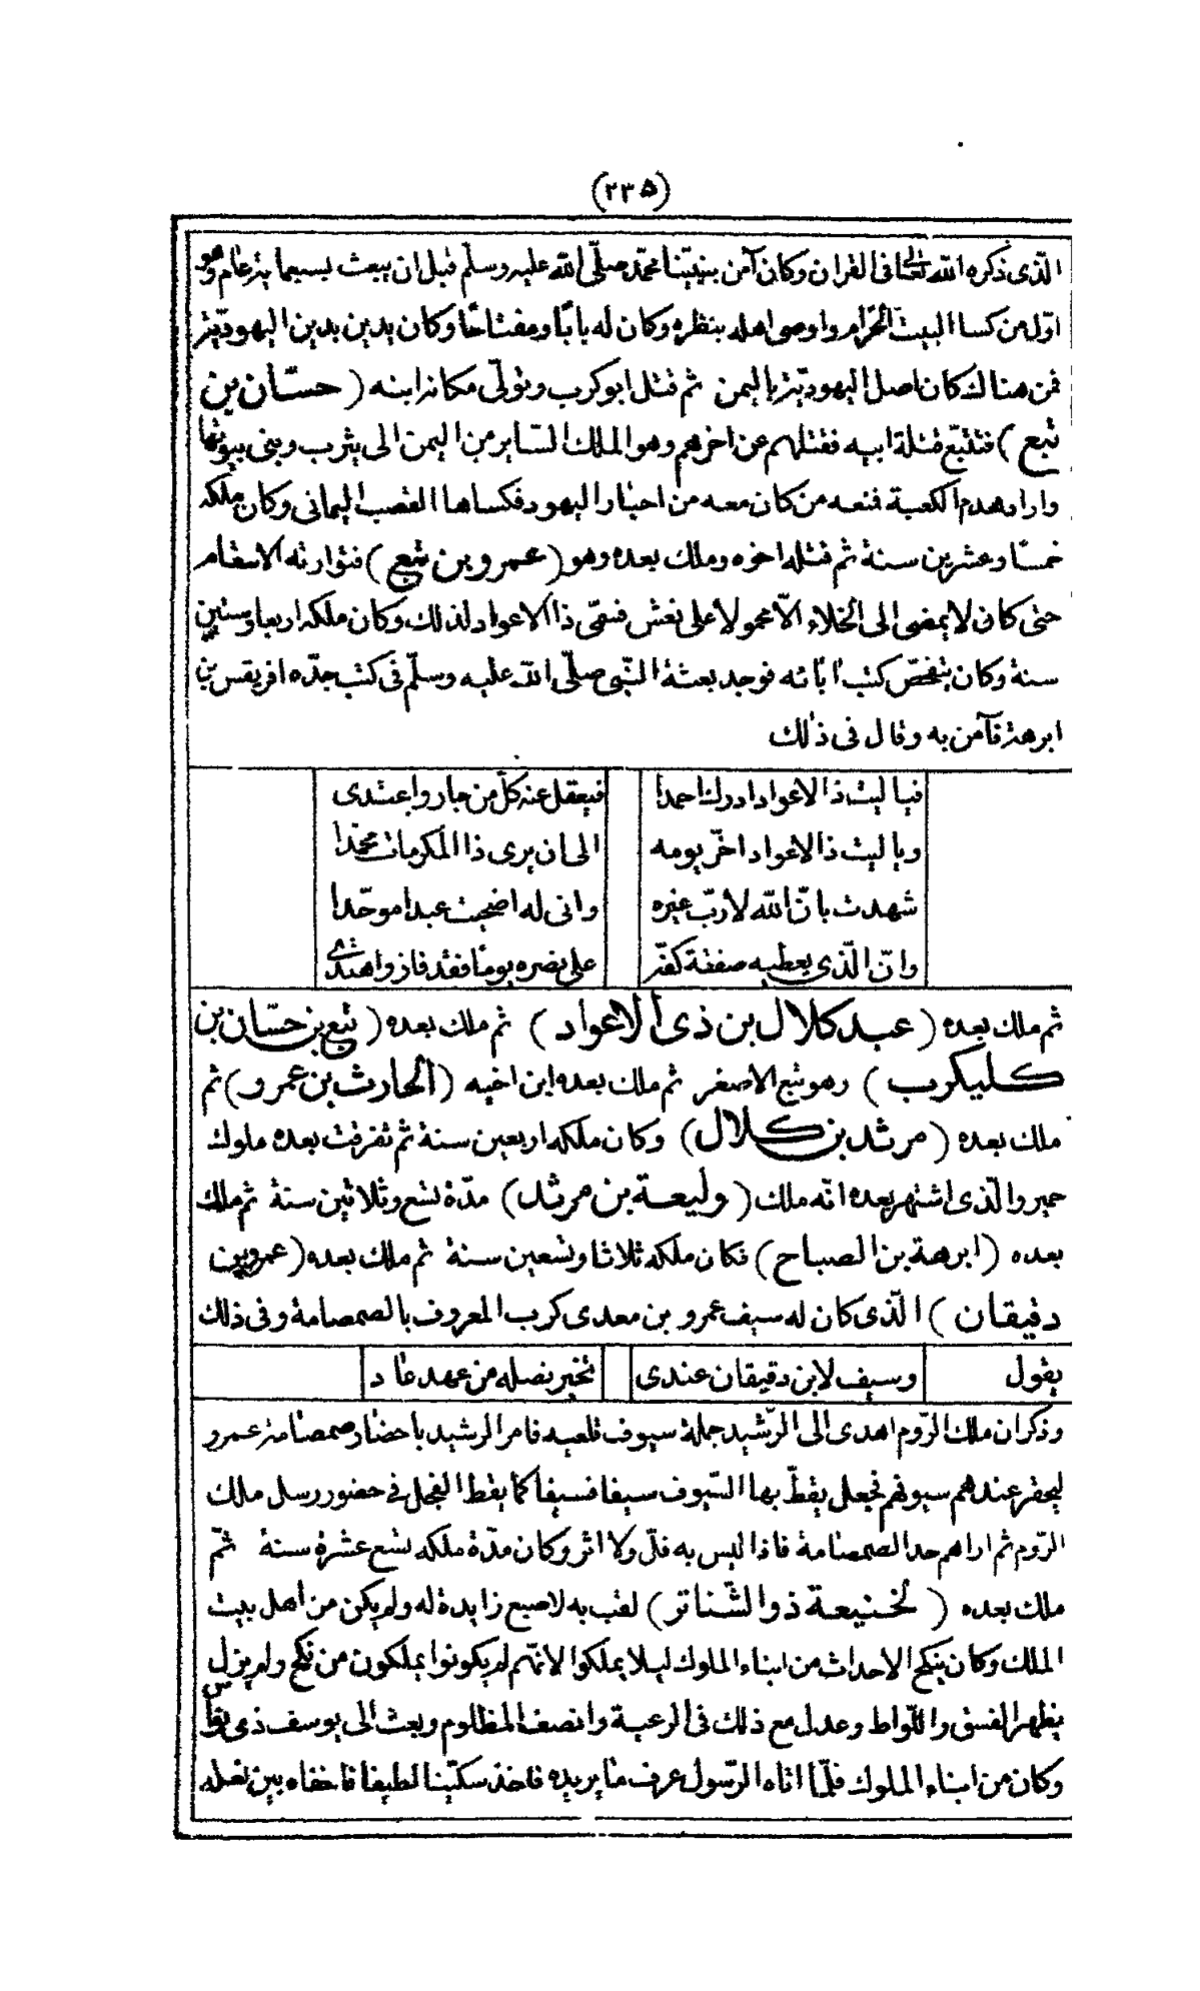 (٢٣٥)
الّذى ذكره الله تعالى فى القران وكان آمن بنبيّنا محمّد صلّى الله عليه وسلّم قبل ان يبعث بسبعماية عام وهو
اوّل من كسا البيت الحرام واوصى اهله بنظره وكان له بابًا ومفتاحًا وكان يدين بدين اليهوديّة
فمن هناك كان اصل اليهوديّة باليمن ثم قتل ابو كرب وتولّى مكانه ابنه (حسّان بن
تبع) فتتبّع قتلة ابيه فقتلهم عن اخرهم وهو الملك السّاير من اليمن الى يثرب وبنى بيوتها
واراد هدم الكعبة فنعه من كان معه من احبار اليهود فكساها القصب اليمانى وكان ملكه
خمسًا وعشرين سنة ثم قتله اخوه وملك بعده وهو (عمرو بن تبع) فتوارثه الاسقام
حتى كان لا يمضى الى الخلاء الّا محمولا على نعش فسمّى ذا الاعواد لذلك وكان ملكه اربعا وستين
سنة وكان يتفحّص كتب ابائه فوجد بعثة النّبى صلّى الله عليه وسلّم فى كتب جدّه افريقس بن
ابرهة فآمن به وقال فى ذلك
فيا ليت ذا الاعواد ادرك احمدا فيعقل عنه كلّ من جار واعتدى
ويا ليت ذا الاعواد اخّر يومه الى ان يرى ذا المكرمات محمّدا
شهدت بانّ الله لا ربّ غيره وانى له اضحيت عبدا موحّدا
وانّ الّذى يعطيه صفقة كفّه على نصره يومًا فقد فاز واهتدى
ثم ملك بعده (عبد كلال بن ذى الاعواد) ثم ملك بعده (تبع بن حسّان بن
كليكرب) وهو تبع الاصغر ثم ملك بعده ابن اخيه (الحارث بن عمرو) ثم
ملك بعده (مرثد بن كلال) وكان ملكه اربعين سنة ثم تفرقت بعده ملوك
حمير والّذى اشتهر بعده انّه ملك (وليعة بن مرثد) مدّة تسع وثلاثين سنة ثم ملك
بعده (ابرهة بن الصباح) فكان ملكه ثلاثا وتسعين سنة ثم ملك بعده (عمرو بن
دقيقان) الّذى كان له سيف عمرو بن معدى كرب المعروف بالصمصامة وفى ذلك
يقول وسيف لابن دقيقان عندى تخير نصله من عهد عاد
وذكر ان ملك الرّوم اهدى الى الرّشيد جملة سيوف قلعيه فامر الرشيد باحضار صمصامة عمرو
ليحقر عندهم سيوفهم فجعل يقطّ بها السّيوف سيفا فسيفا كما يقط الفجل فى حضور رسل ملك
الرّوم ثم اراهم حد الصمصامة فاذا ليس به فلّ ولا اثر وكان مدّة ملكه تسع عشرة سنة ثمّ
ملك بعده (لخنيعة ذو الشّناتر) لقب به لاصبع زايدة له ولم يكن من اهل بيت
الملك وكان ينكح الاحداث من ابناء الملوك ليلا يملكوا لانهّم لم يكونوا يملكون من نكح ولم يزل
يظهر الفسق واللّواط وعدل مع ذلك فى الرعية وانصف المظلوم وبعث الى يوسف ذى نواس
وكان من ابناء الملوك فلّما اتاه الرّسول عرف ما يريده فاخذ سكّينا لطيفا فاخفاه بين نعله